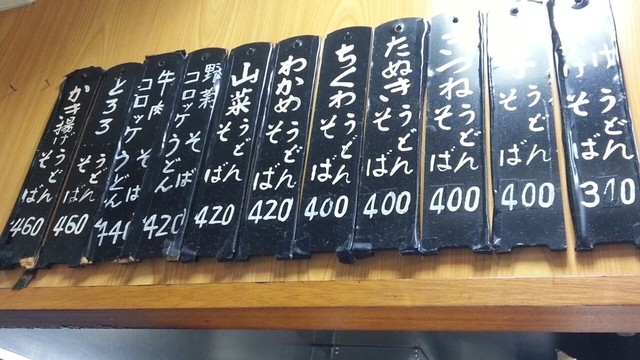 うどん
そば
310
子
そば
400
きつね
うどん
そば
400
たぬき
うどん
そば
400
ちくわ
うどん
そば
400
わかめ
うどん
そば
420
山菜
うどん
そば
420
野菜
コロッケ
うどん
そば
420
牛肉
コロッケ
うどん
そば
440
とろろ
うどん
そば
460
かき揚げ
うどん
そば
460